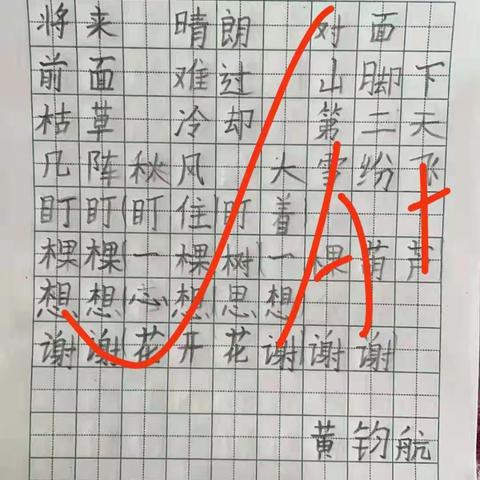 将来 晴朗 对面
前面 难过 山脚下
枯草 冷却 第二天
几阵秋风 大雪纷飞
盯盯(盯住)盯着
棵棵(一棵树)(一棵葫芦)
想想(心想)思想
谢谢(花开花谢)(谢谢)
黄钧航
A+